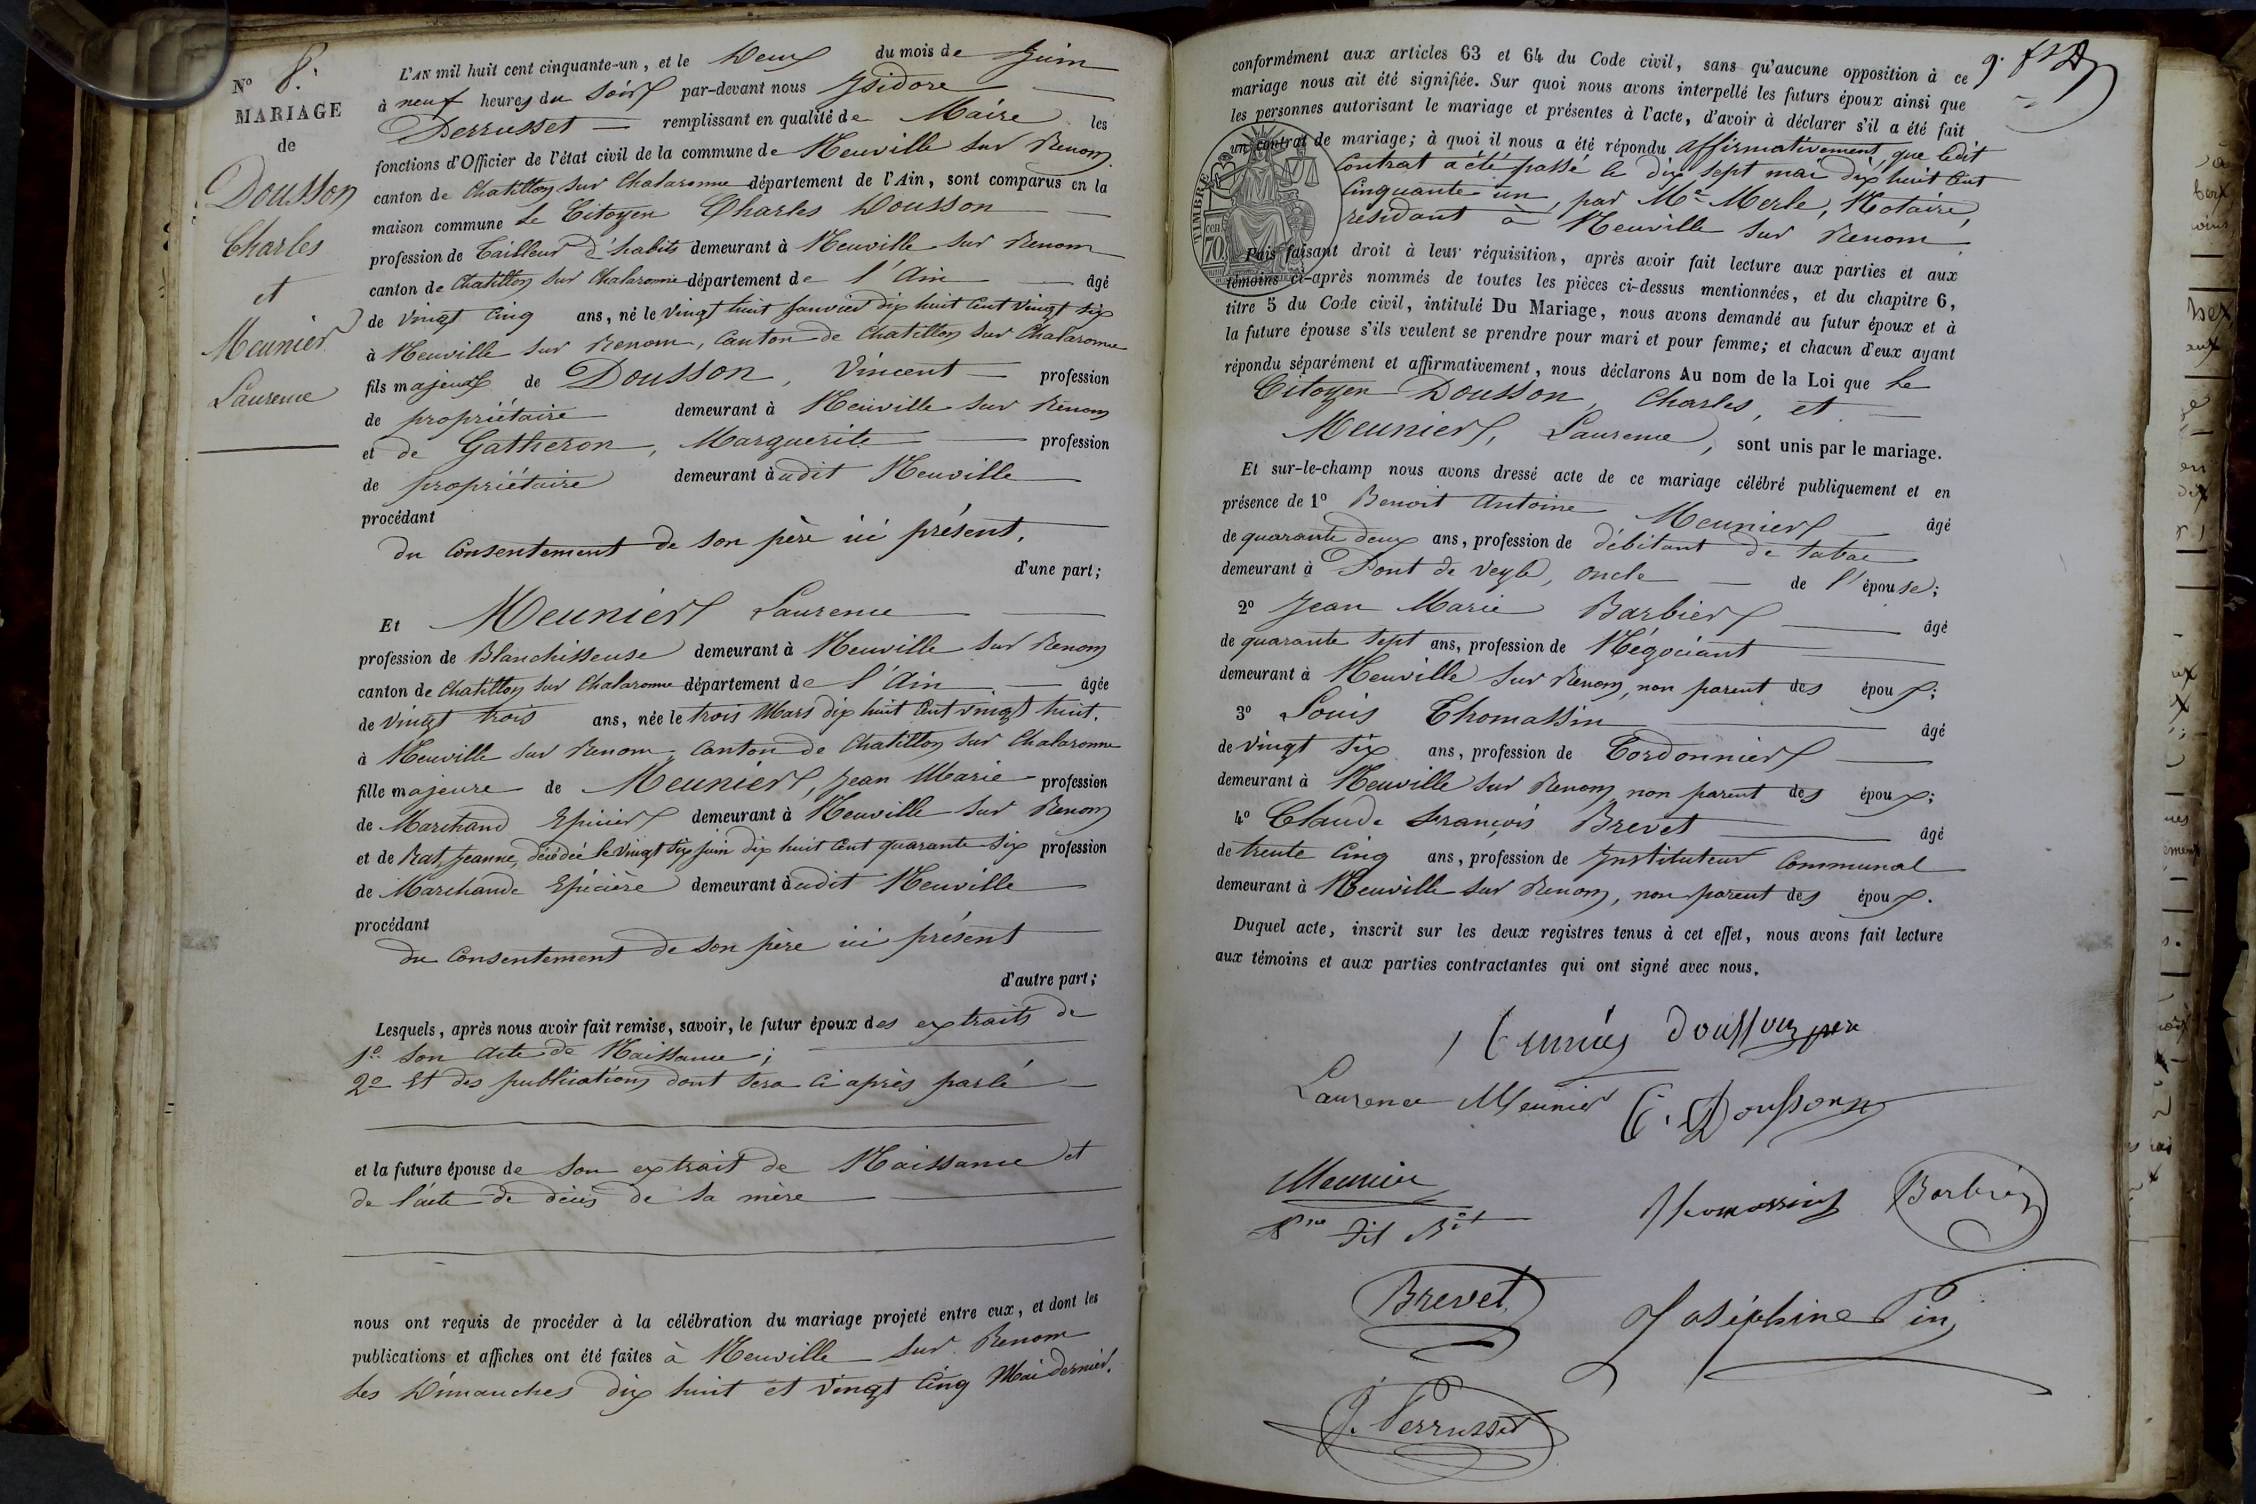 N° 8.
MARIAGE
de
Dousson
Charles
et
Meunier
Laurence
L'AN mil huit cent cinquante-un, et le Deux du mois de Juin
à neuf heures du Soir par-devant nous Isidore
Perrusset remplissant en qualité de Maire les
fonctions d'Officier de l'état civil de la commune de Neuville sur Renom
canton de Chatillon sur Chalaronne département de l'Ain, sont comparus en la
maison commune Le Citoyen Charles Dousson
profession de Tailleur d'habits demeurant à Neuville sur Renom
canton de Chatillon sur Chalaronne département de l'Ain âgé
de vingt cinq ans, né le vingt huit Janvier dix huit cent vingt six
à Neuville sur Renom, Canton de Chatillon sur Chalaronne
fils majeur de Dousson, Vincent profession
de propriétaire demeurant à Neuville sur Renom
et de Gatheron, Marguerite profession
de propriétaire demeurant àudit Neuville
procédant
du Consentement de son père ici présent.
d'une part;
Et Meunier Laurence
profession de Blanchisseuse demeurant à Neuville sur Renom
canton de Chatillon sur Chalaronne département de l'Ain âgée
de vingt trois ans, née le trois Mars dix huit cent vingt huit.
à Neuville sur Renom, Canton de Chatillon sur Chalaronne
fille majeure de Meunier, Jean Marie profession
de Marchand Epicier demeurant à Neuville sur Renom
et de Rat, Jeanne, décédée le vingt six Juin dix huit cent quarante six profession
de Marchande Epicière demeurant àudit Neuville
procédant
du Consentement de son père ici présent
d'autre part;
Lesquels, après nous avoir fait remise, savoir, le futur époux des extraits de
1° son acte de Naissance;
2° Et des publications dont sera ci après parlé
et la future épouse de son extrait de Naissance et
de l'acte de décès de sa mère
nous ont requis de procéder à la célébration du mariage projeté entre eux, et dont les
publications et affiches ont été faites à Neuville sur Renom
les Dimanches dix huit et vingt cinq Mai dernier.
conformément aux articles 63 et 64 du Code civil, sans qu'aucune opposition à ce
mariage nous ait été signifiée. Sur quoi nous avons interpellé les futurs époux ainsi que
les personnes autorisant le mariage et présentes à l'acte, d'avoir à déclarer s'il a été fait
un contrat de mariage; à quoi il nous a été répondu affirmativement, que ledit
Contrat a été passé le dix sept mai dix huit cent
Cinquante un, par Me Merle, Notaire,
résidant à Neuville sur Renom
TIMBRE
cen
70
Puis faisant droit à leur réquisition, après avoir fait lecture aux parties et aux
témoins ci-après nommés de toutes les pièces ci-dessus mentionnées, et du chapitre 6,
titre 5 du Code civil, intitulé Du Mariage, nous avons demandé au futur époux et à
la future épouse s'ils veulent se prendre pour mari et pour femme; et chacun d'eux ayant
répondu séparément et affirmativement, nous déclarons Au nom de la Loi que Le
Citoyen Dousson, Charles, et
Meunier, Laurence, sont unis par le mariage.
Et sur-le-champ nous avons dressé acte de ce mariage célébré publiquement et en
présence de 1° Benoit Antoine Meunier âgé
de quarante deux ans, profession de débitant de tabac
demeurant à Pont de Veyle, oncle de l'épouse;
2° Jean Marie Barbier âgé
de quarante sept ans, profession de Négociant
demeurant à Neuville sur Renom, non parent des époux;
3° Louis Thomassin âgé
de vingt six ans, profession de Cordonnier
demeurant à Neuville sur Renom, non parent des époux;
4° Claude François Brevet âgé
de trente cinq ans, profession de Instituteur Communal
demeurant à Neuville sur Renom, non parent des époux.
Duquel acte, inscrit sur les deux registres tenus à cet effet, nous avons fait lecture
aux témoins et aux parties contractantes qui ont signé avec nous.
Dousson père
Laurence Meunier C. Dousson
Meunier
dit
Thomassin Barbier
Brevet
Joséphine Pin
J. Perrusset